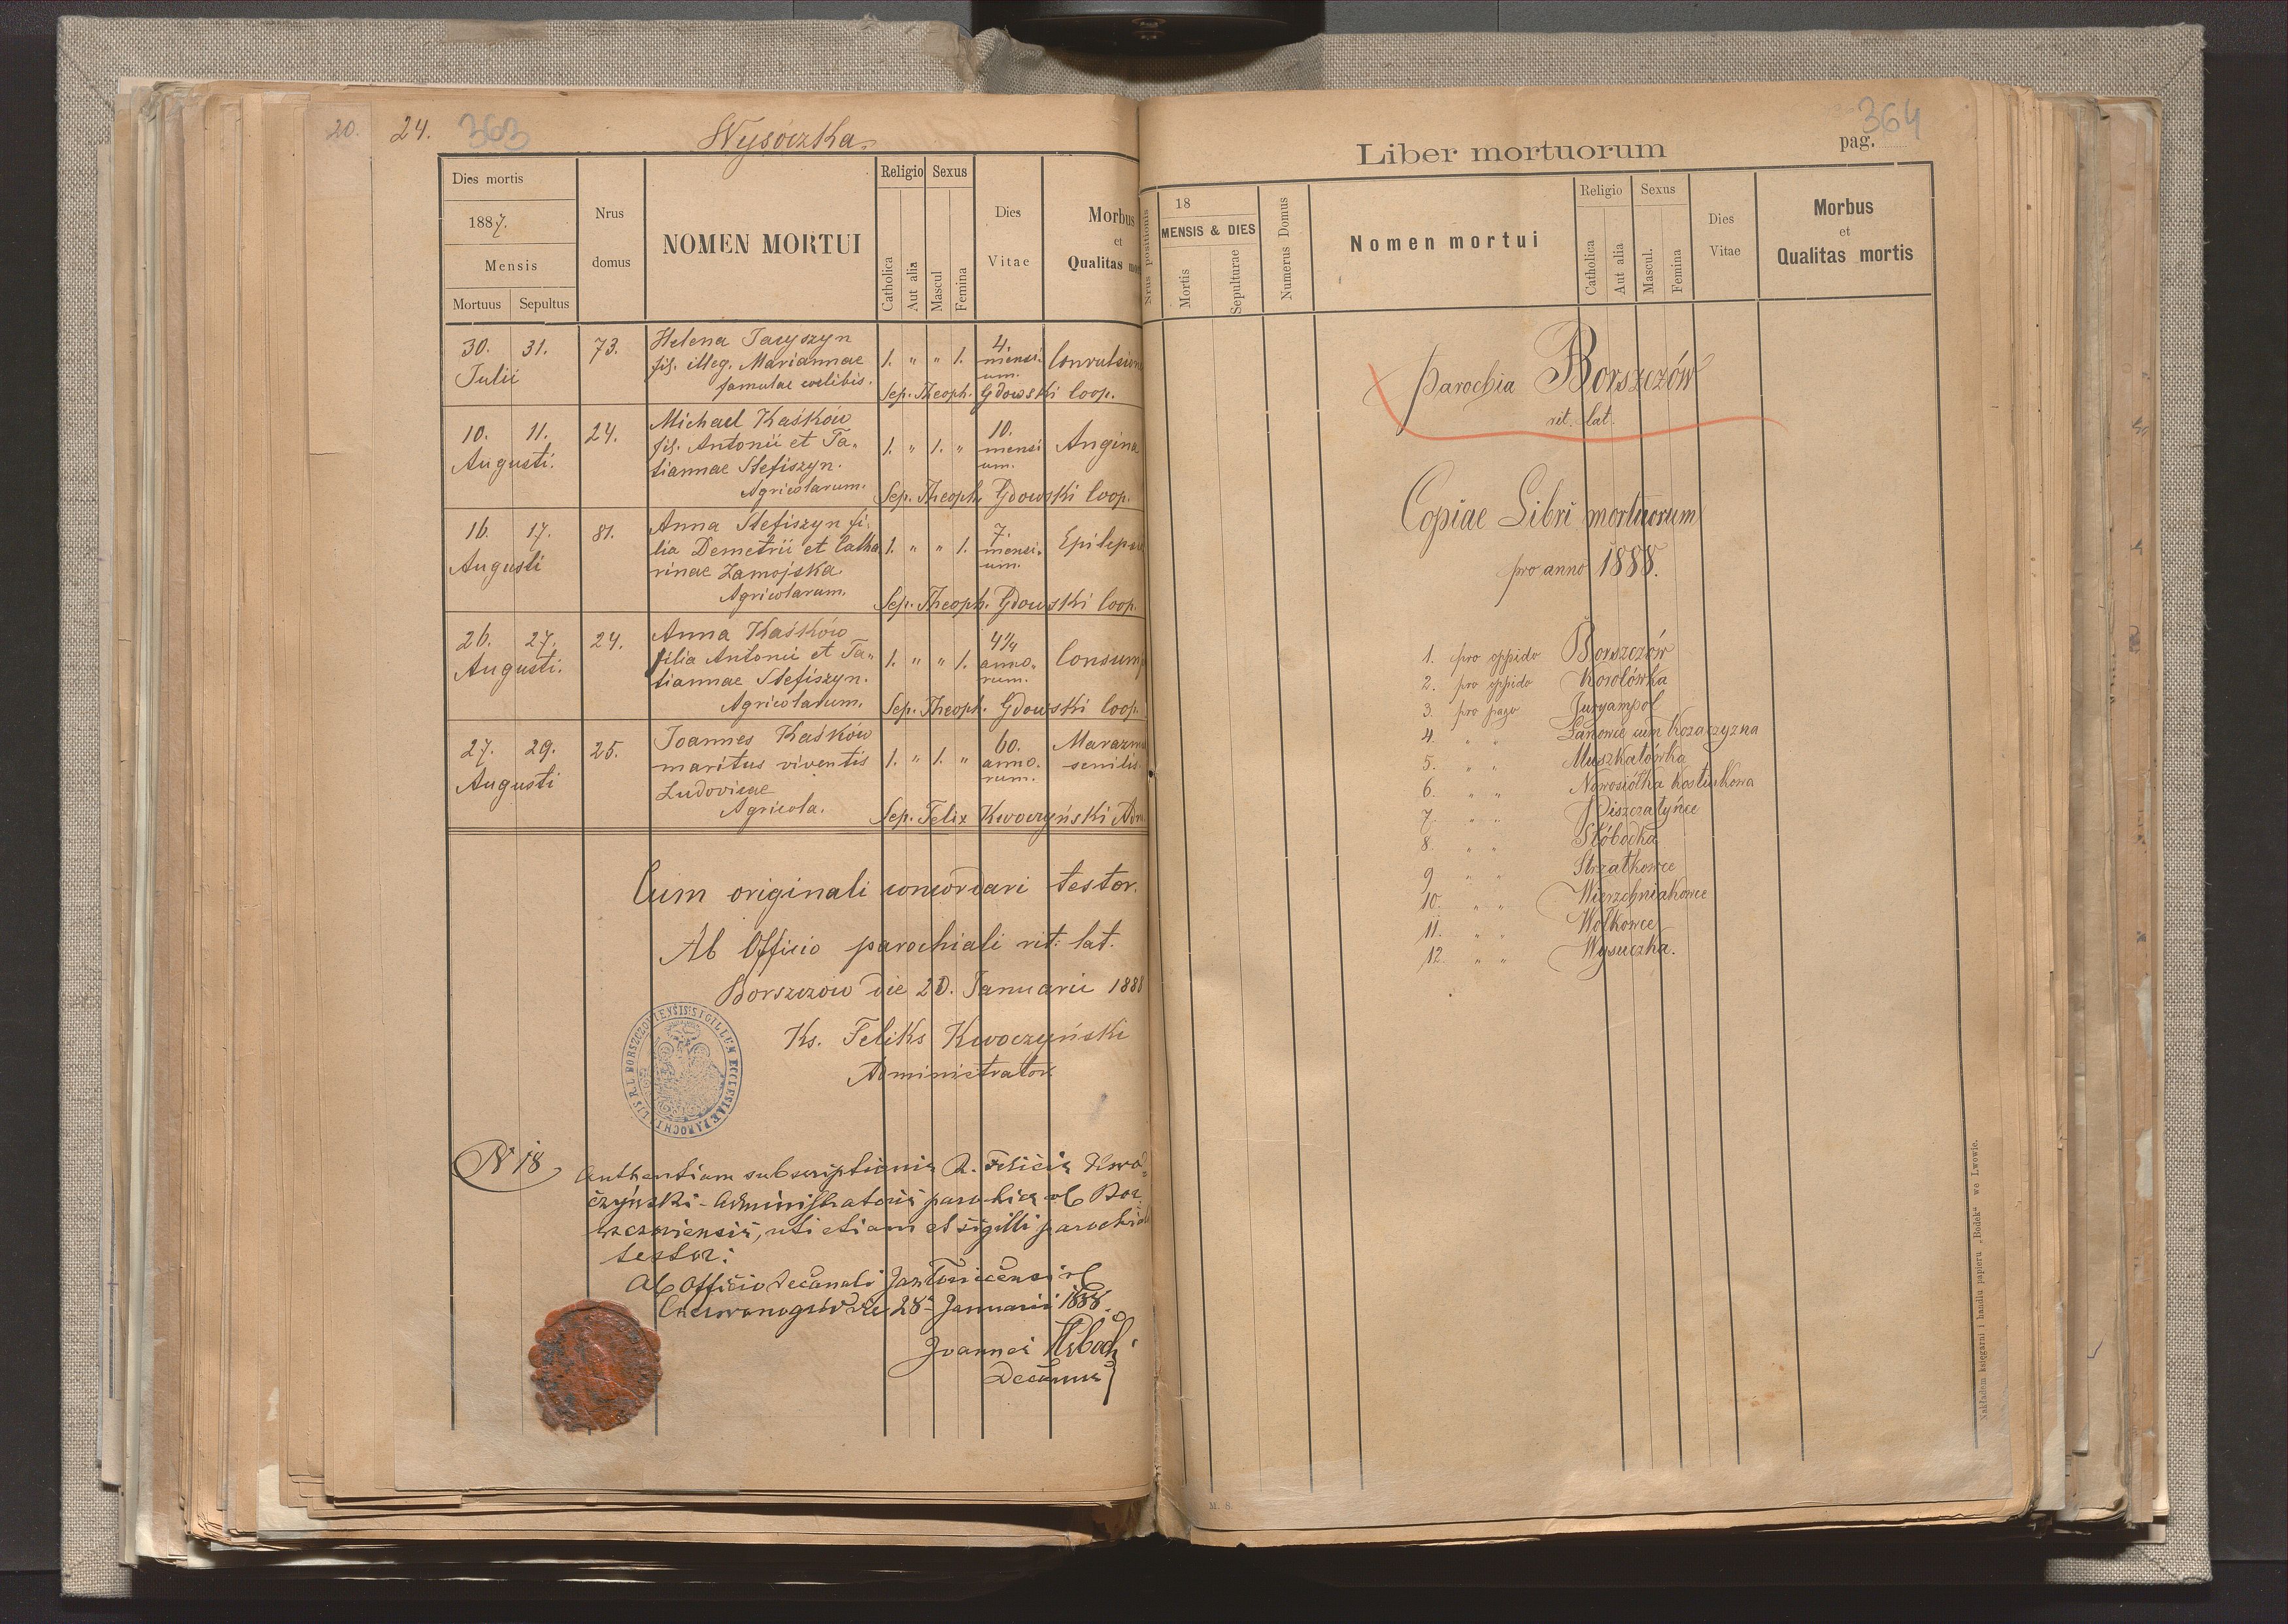 20. 24. 363
Wysoczka
Dies mortis
1887.
Mensis
Mortuus Sepultus
Nrus
domus
NOMEN MORTUI
Religio
Catholica
Aut alia
Sexus
Mascul
Femina
Dies
Vitae
Morbus
et
Qualitas
30. 31. 73. Helena
fil. illeg. Mariannae 1. " " 1. 4. mensi-
Julii famulae coelibis. um.
Sep. Theoph. Gdowski Coop.
10. 11. 24. Michael Kaśków
fil. Antonii et Ta- 1. " 1. " 10. mensi Angina
Augusti. tiannae Stefiszyn. um.
Agricolarum.
Sep. Theoph. Gdowski Coop.
16. 17. 81. Anna Stefiszyn fi-
lia Demetrii et Catha 1. " " 1. 7. mensi-
Augusti rinae Zamojska um.
Agricolarum.
Sep. Theoph. Gdowski Coop.
26. 27. 24. Anna Kaśków
filia Antonii et Ta- 1. " " 1. 4¼ anno-
Augusti. tiannae Stefiszyn. rum.
Agricolarum.
Sep. Theoph. Gdowski Coop.
27. 29. 25. Joannes Kaśków
maritus viventis 1. " 1. " 60. anno. senilis
Augusti Ludovicae rum.
Agricola.
Sep. Felix Kwoczyński Adm.
Cum originali concordari testor.
Ab Officio parochiali rit. lat.
Borszczow die 20. Januarii 1888
Ks. Feliks Kwoczyński
Administrator
SIGILLUM ECCLESIAE PAROCHIALIS R.L. BORSZCZOVIENSIS
N 18
Authentiam subscriptionis R. Felicis Kwo-
czyński - Administratoris parochiae rl Bor-
szczoviensis, uti etiam et sigilli parochial
testor:
Ab Officio Decanali Jazłoviecensi rl
Czerwonogród die 28ª Januarii 1888.
Joannes
Decanus
364
Liber mortuorum
pag.
Nrus positionis
18
MENSIS & DIES
Mortis
Sepulturae
Numerus Domus
Nomen mortui
Religio
Catholica
Aut alia
Sexus
Mascul.
Femina
Dies
Vitae
Morbus
et
Qualitas mortis
Parochia Borszczów
rit. lat.
Copiae Libri mortuorum
pro anno 1888.
1. pro oppido Borszczów
2. pro oppido Korolówka
3. pro pago Juryampol
4. " " Łanowce cum Kozaczyzna
5. " " Muszkatówka
6. " " Nowosiółka Kostiukowa
7. " " Piszczatyńce
8. " " Słóbodka
9. " " Strzałkowce
10. " " Wierzchniakowce
11. " " Wołkowce
12. " " Wysuczka.
Nakładem księgarni i handlu papieru „Bodek“ we Lwowie.
M. S.